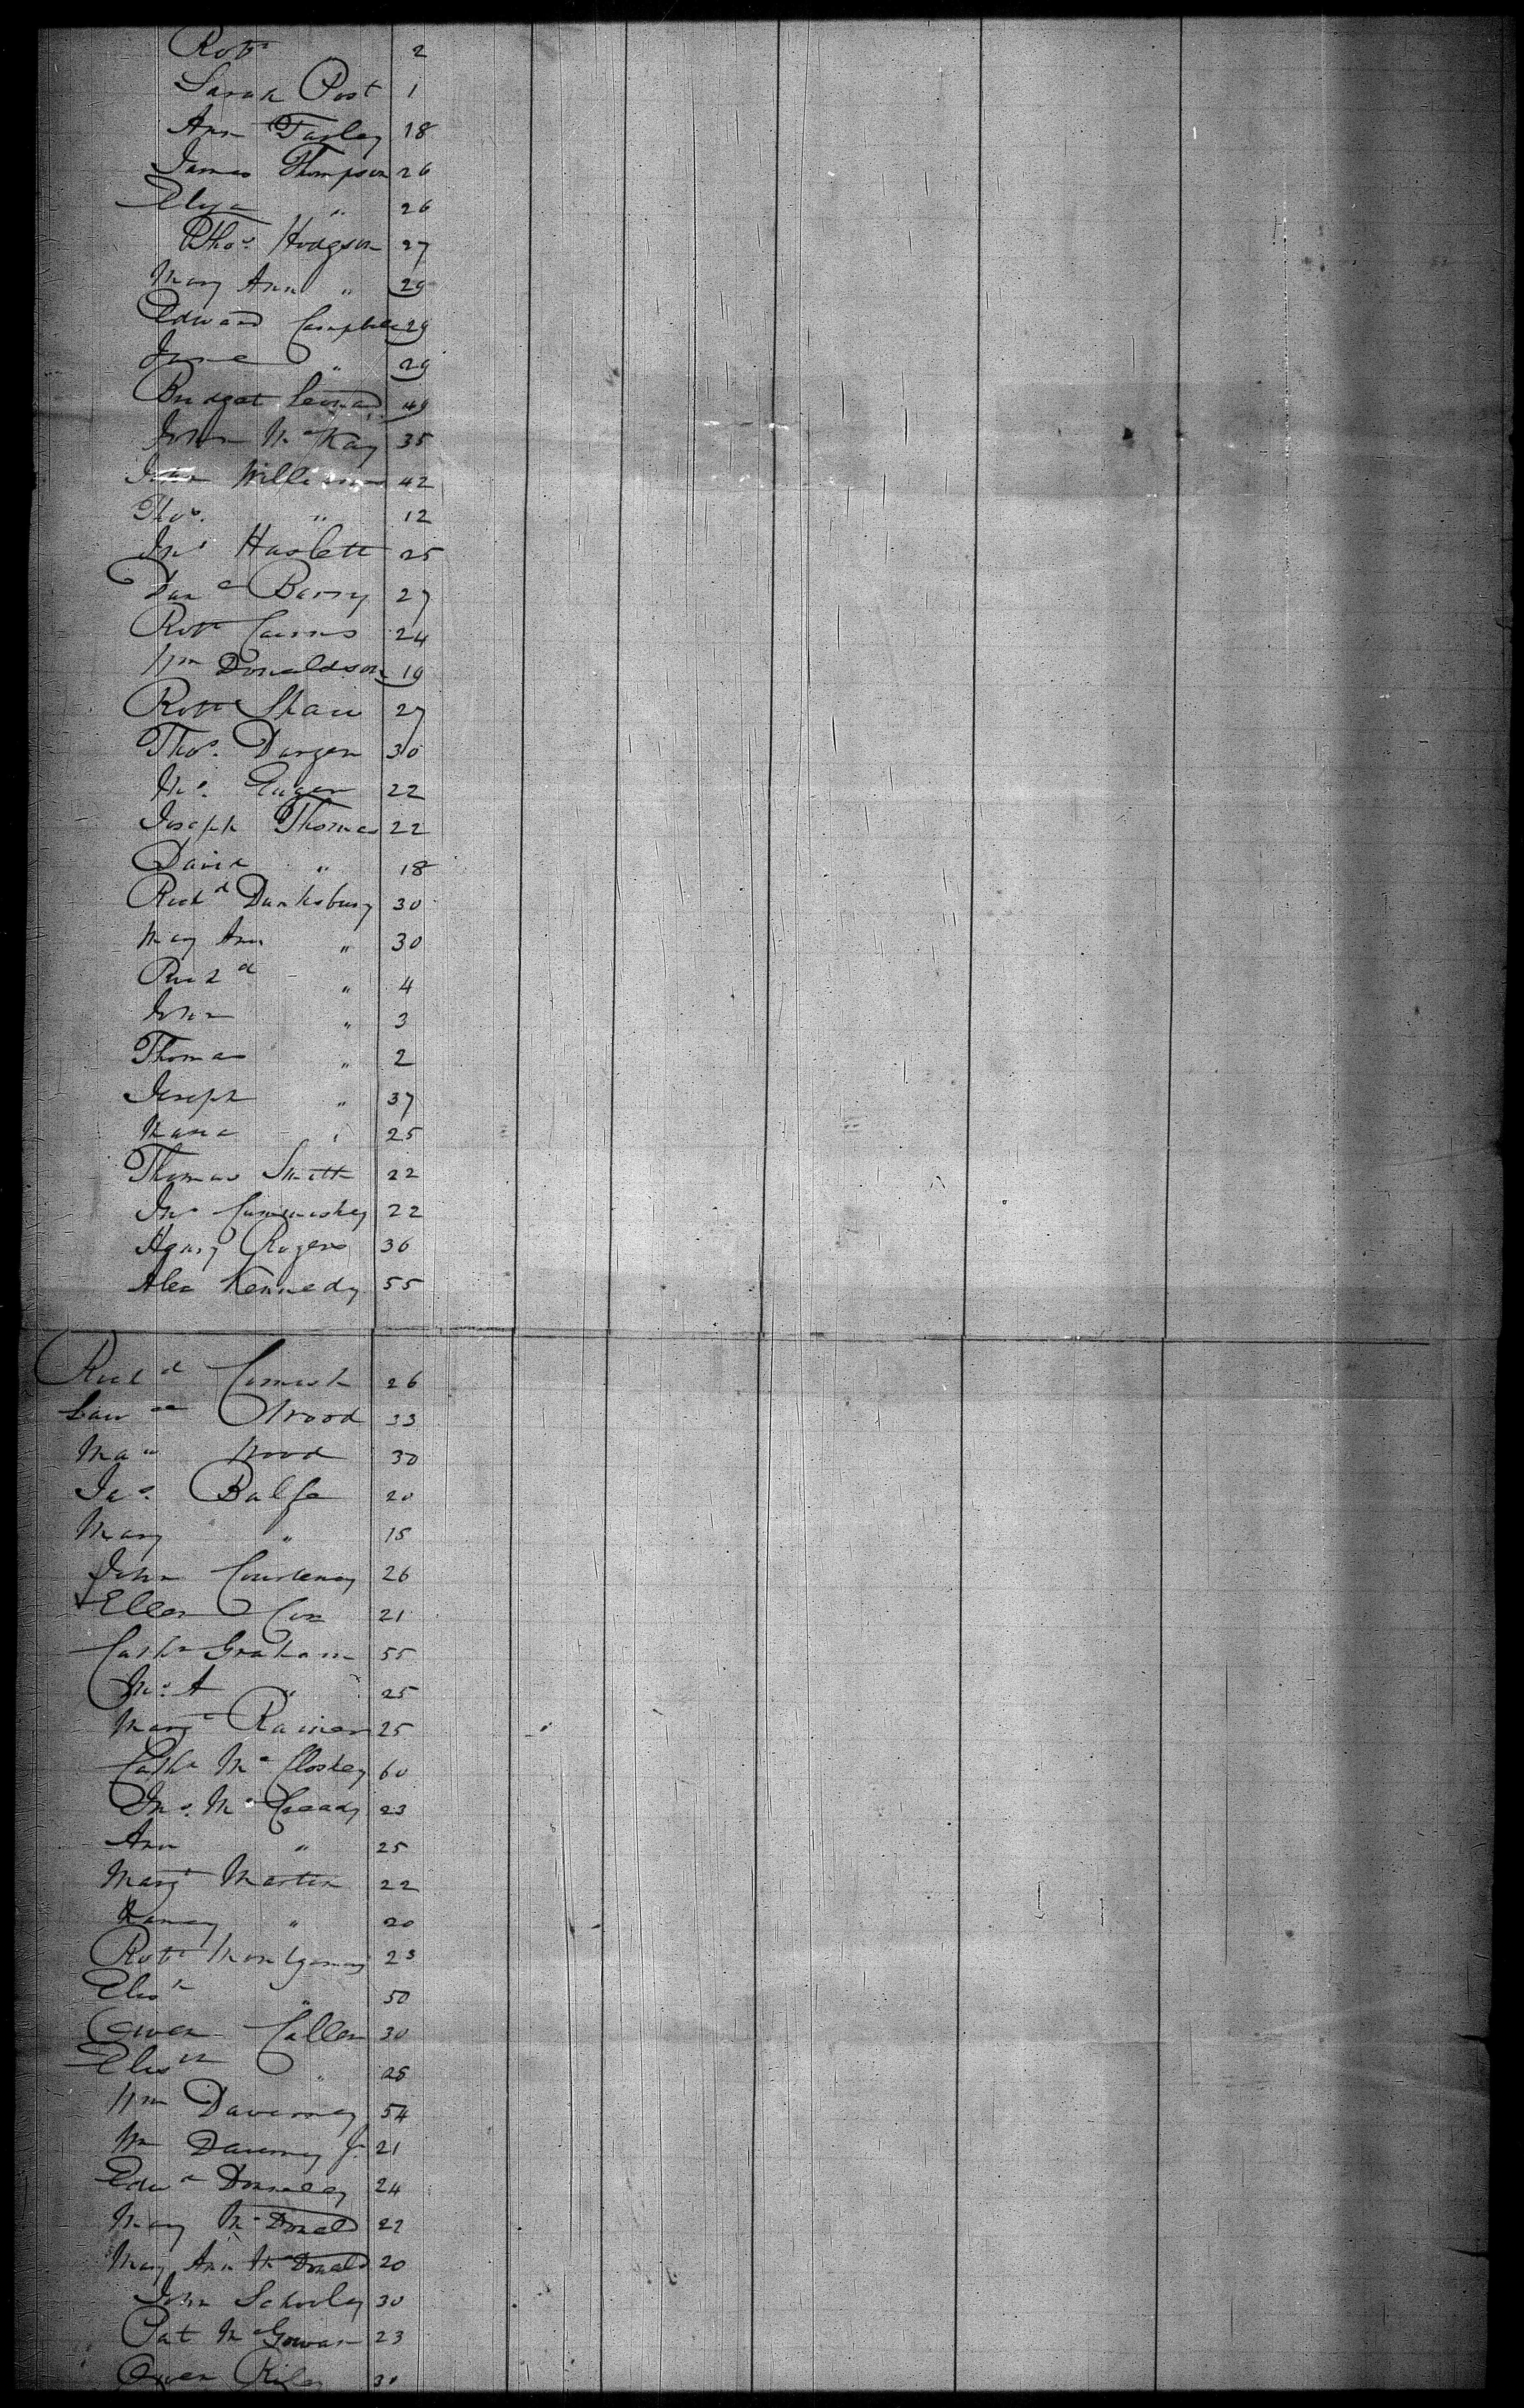 Robt 2
Sarah Post 1
Ann Farley 18
James Thompson 26
Eliza " 26
Thos. Hodgson 27
Mary Ann " 29
Edward Campbell 29
Jane " 29
Bridget Leonard 49
John McKay 35
John Williams 42
Thos. " 12
Jno Haslett 25
Danl Barry 27
Robt Cairns 24
Wm Donaldson 19
Robt Shaw 27
Thos. Dargen 30
Jno. 22
Joseph Thomas 22
David " 18
Richd Dunksbury 30
Mary Ann " 30
Richd " 4
John " 3
Thomas " 2
Joseph " 37
Maria " 25
Thomas Smith 22
Jno Cummiskey 22
Henry Rogers 36
Alex Kennedy 55
Richd Cormick 26
Lawce Wood 33
Wood 30
Jas. Balfe 20
Mary " 15
John Courtenay 26
Ellen Cox 21
Cathn Graham 55
Jno. A " 25
Margt 25
Cathn McCloskey 60
Jno. McCready 23
Ann " 25
Margt Martin 22
Nancy " 20
Robt Montgomery 23
Elizth " 50
Owen Callen 30
Elizth " 25
Wm Daverney 54
Wm Daverney Jr. 21
Edwd Donnelly 24
Mary McDonald 22
Mary Ann McDonald 20
John Schooley 30
Pat McGowan 23
Owen Riley 30